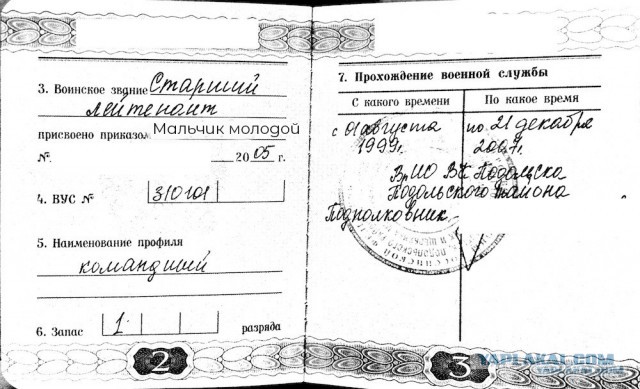 3. Воинское звание Старший
лейтенант
присвоено приказом Мальчик молодой
№. 2005 г.
4. ВУС № 310101
5. Наименование профиля
командный
6. Запас 1 разряда
2
7. Прохождение военной службы
С какого времени По какое время
с 01 августа по 21 декабря
1999г. 2007г.
ВрИО ВК Подольска
Подольского района
Подполковник
3
YAPLAKAL.COM